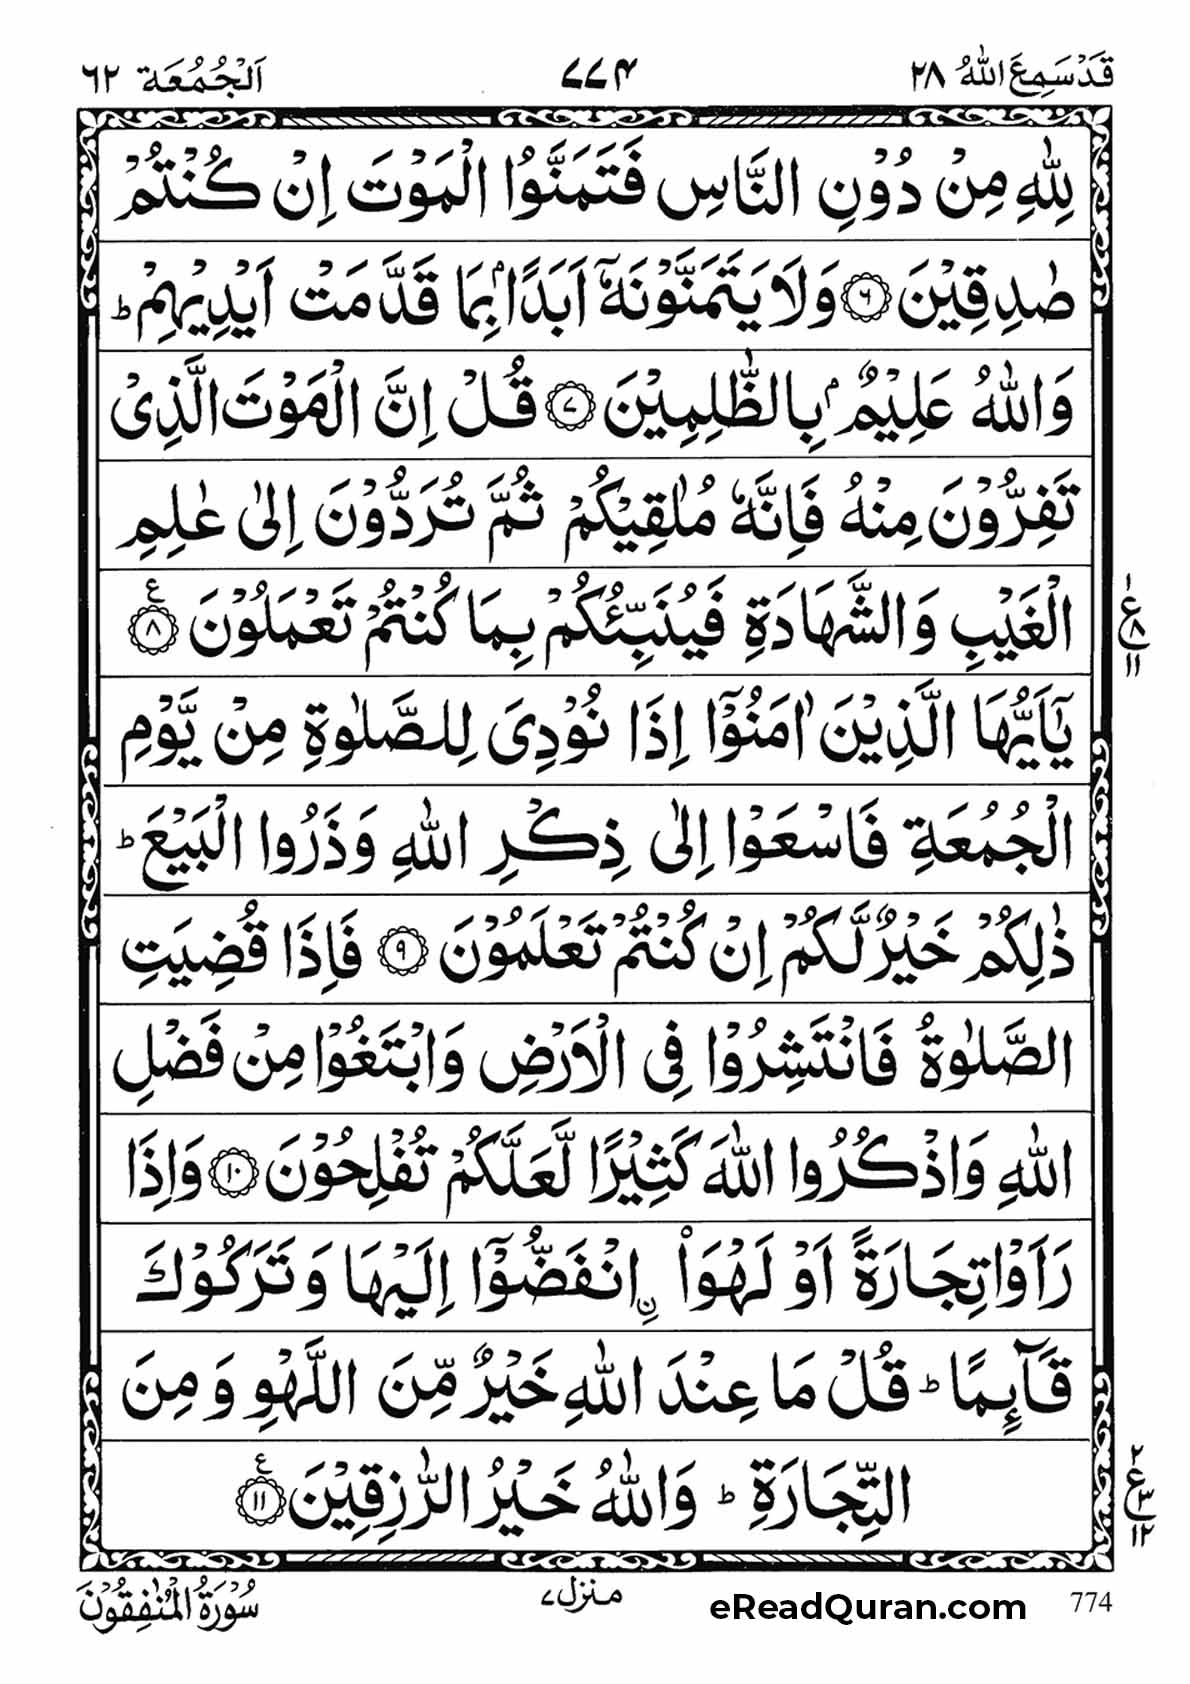 قَدْسَمِعَ اللّٰهُ ٢٨
٧٧۴
اَلْجُمُعَة ٦٢
لِلّٰهِ مِنْ دُوْنِ النَّاسِ فَتَمَنَّوُا الْمَوْتَ اِنْ كُنْتُمْ
صٰدِقِيْنَ ۝٦ وَلَا يَتَمَنَّوْنَهٗۤ اَبَدًۢا بِمَا قَدَّمَتْ اَيْدِيْهِمْ ؕ
وَاللّٰهُ عَلِيْمٌۢ بِالظّٰلِمِيْنَ ۝٧ قُلْ اِنَّ الْمَوْتَ الَّذِىْ
تَفِرُّوْنَ مِنْهُ فَاِنَّهٗ مُلٰقِيْكُمْ ثُمَّ تُرَدُّوْنَ اِلٰى عٰلِمِ
الْغَيْبِ وَالشَّهَادَةِ فَيُنَبِّئُكُمْ بِمَا كُنْتُمْ تَعْمَلُوْنَ ۝٨ ع
١ ع ٨ ١١
يٰۤاَيُّهَا الَّذِيْنَ اٰمَنُوْۤا اِذَا نُوْدِىَ لِلصَّلٰوةِ مِنْ يَّوْمِ
الْجُمُعَةِ فَاسْعَوْا اِلٰى ذِكْرِ اللّٰهِ وَذَرُوا الْبَيْعَ ؕ
ذٰلِكُمْ خَيْرٌ لَّكُمْ اِنْ كُنْتُمْ تَعْلَمُوْنَ ۝٩ فَاِذَا قُضِيَتِ
الصَّلٰوةُ فَانْتَشِرُوْا فِى الْاَرْضِ وَابْتَغُوْا مِنْ فَضْلِ
اللّٰهِ وَاذْكُرُوا اللّٰهَ كَثِيْرًا لَّعَلَّكُمْ تُفْلِحُوْنَ ۝١٠ وَاِذَا
رَاَوْا تِجَارَةً اَوْ لَهْوَاْ ۨانْفَضُّوْۤا اِلَيْهَا وَتَرَكُوْكَ
قَآئِمًا ؕ قُلْ مَا عِنْدَ اللّٰهِ خَيْرٌ مِّنَ اللَّهْوِ وَمِنَ
التِّجَارَةِ ؕ وَاللّٰهُ خَيْرُ الرّٰزِقِيْنَ ۝١١ ع
٢ ع ٣ ١٢
سُوْرَةُ الْمُنٰفِقُوْنَ
منزل ٧
eReadQuran.com
774